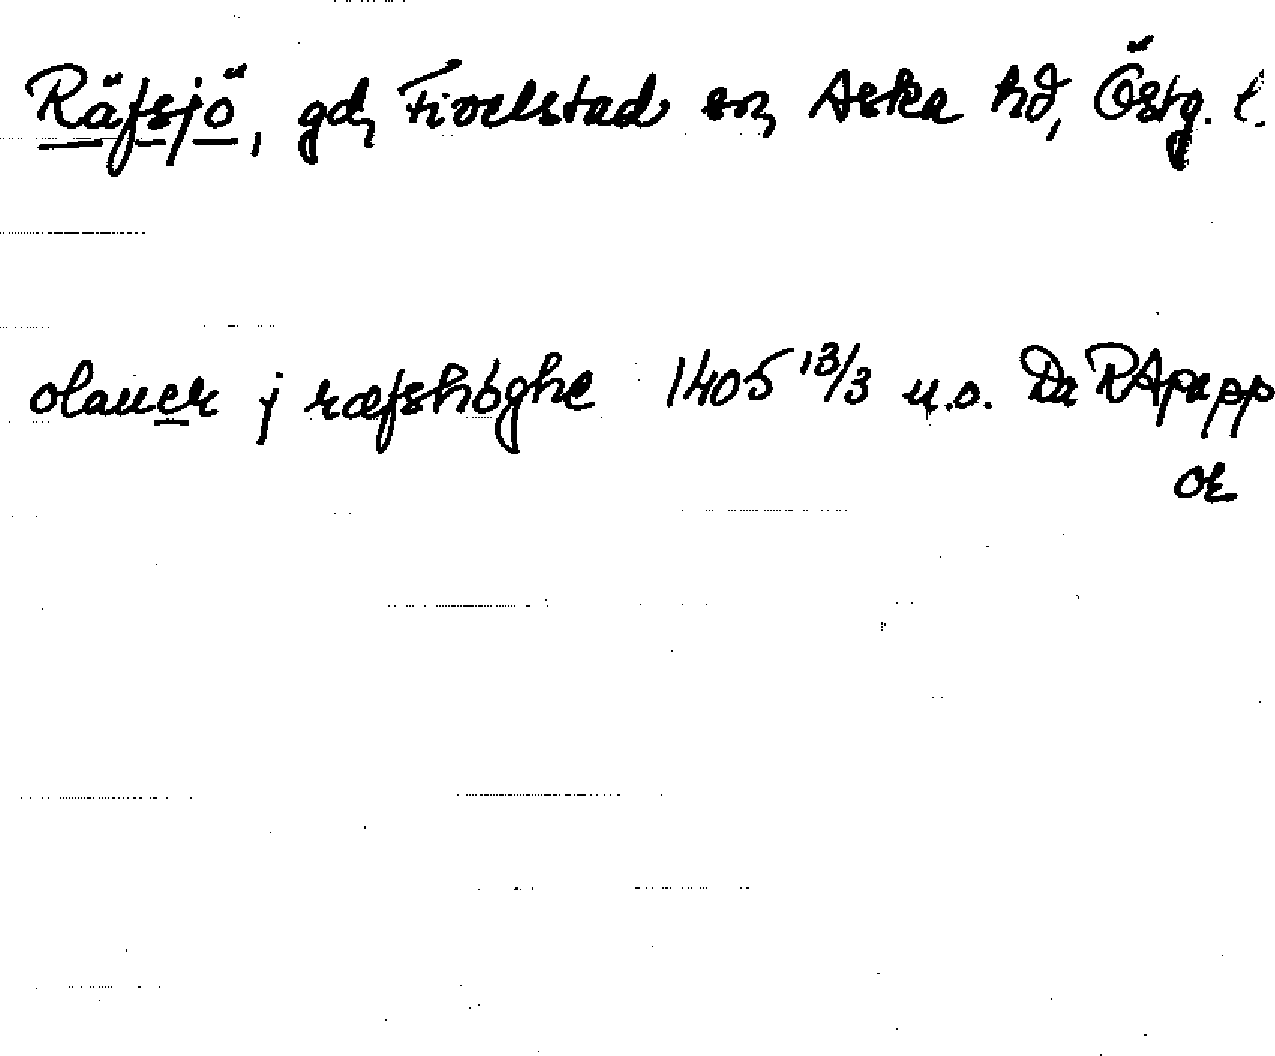 Räfsjö, gd, Fivelstad sn, Aska hd, Östg. l.
olauer j ræfshöghe 1405 13/3 u.o. Da RApapp
OR